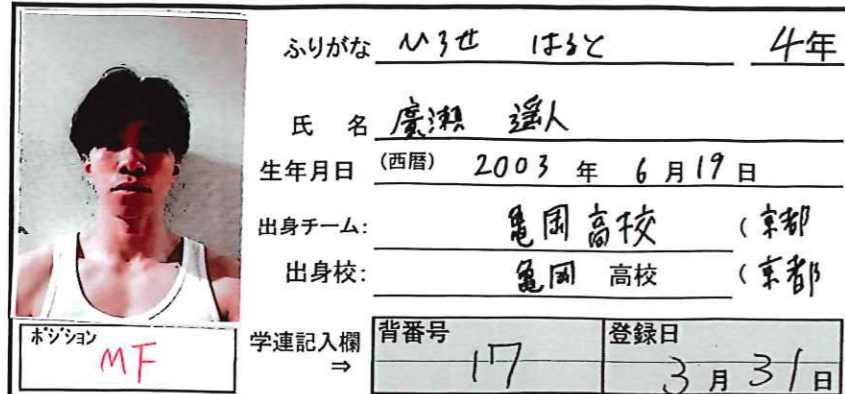 ふりがな ひろせ はると 4年
氏 名 廣瀬 遥人
生年月日 (西暦) 2003 年 6月19日
出身チーム: 亀岡高校 (京都
出身校: 亀岡 高校 (京都
ポジション
MF
学連記入欄
⇒
背番号
17
登録日
3月31日